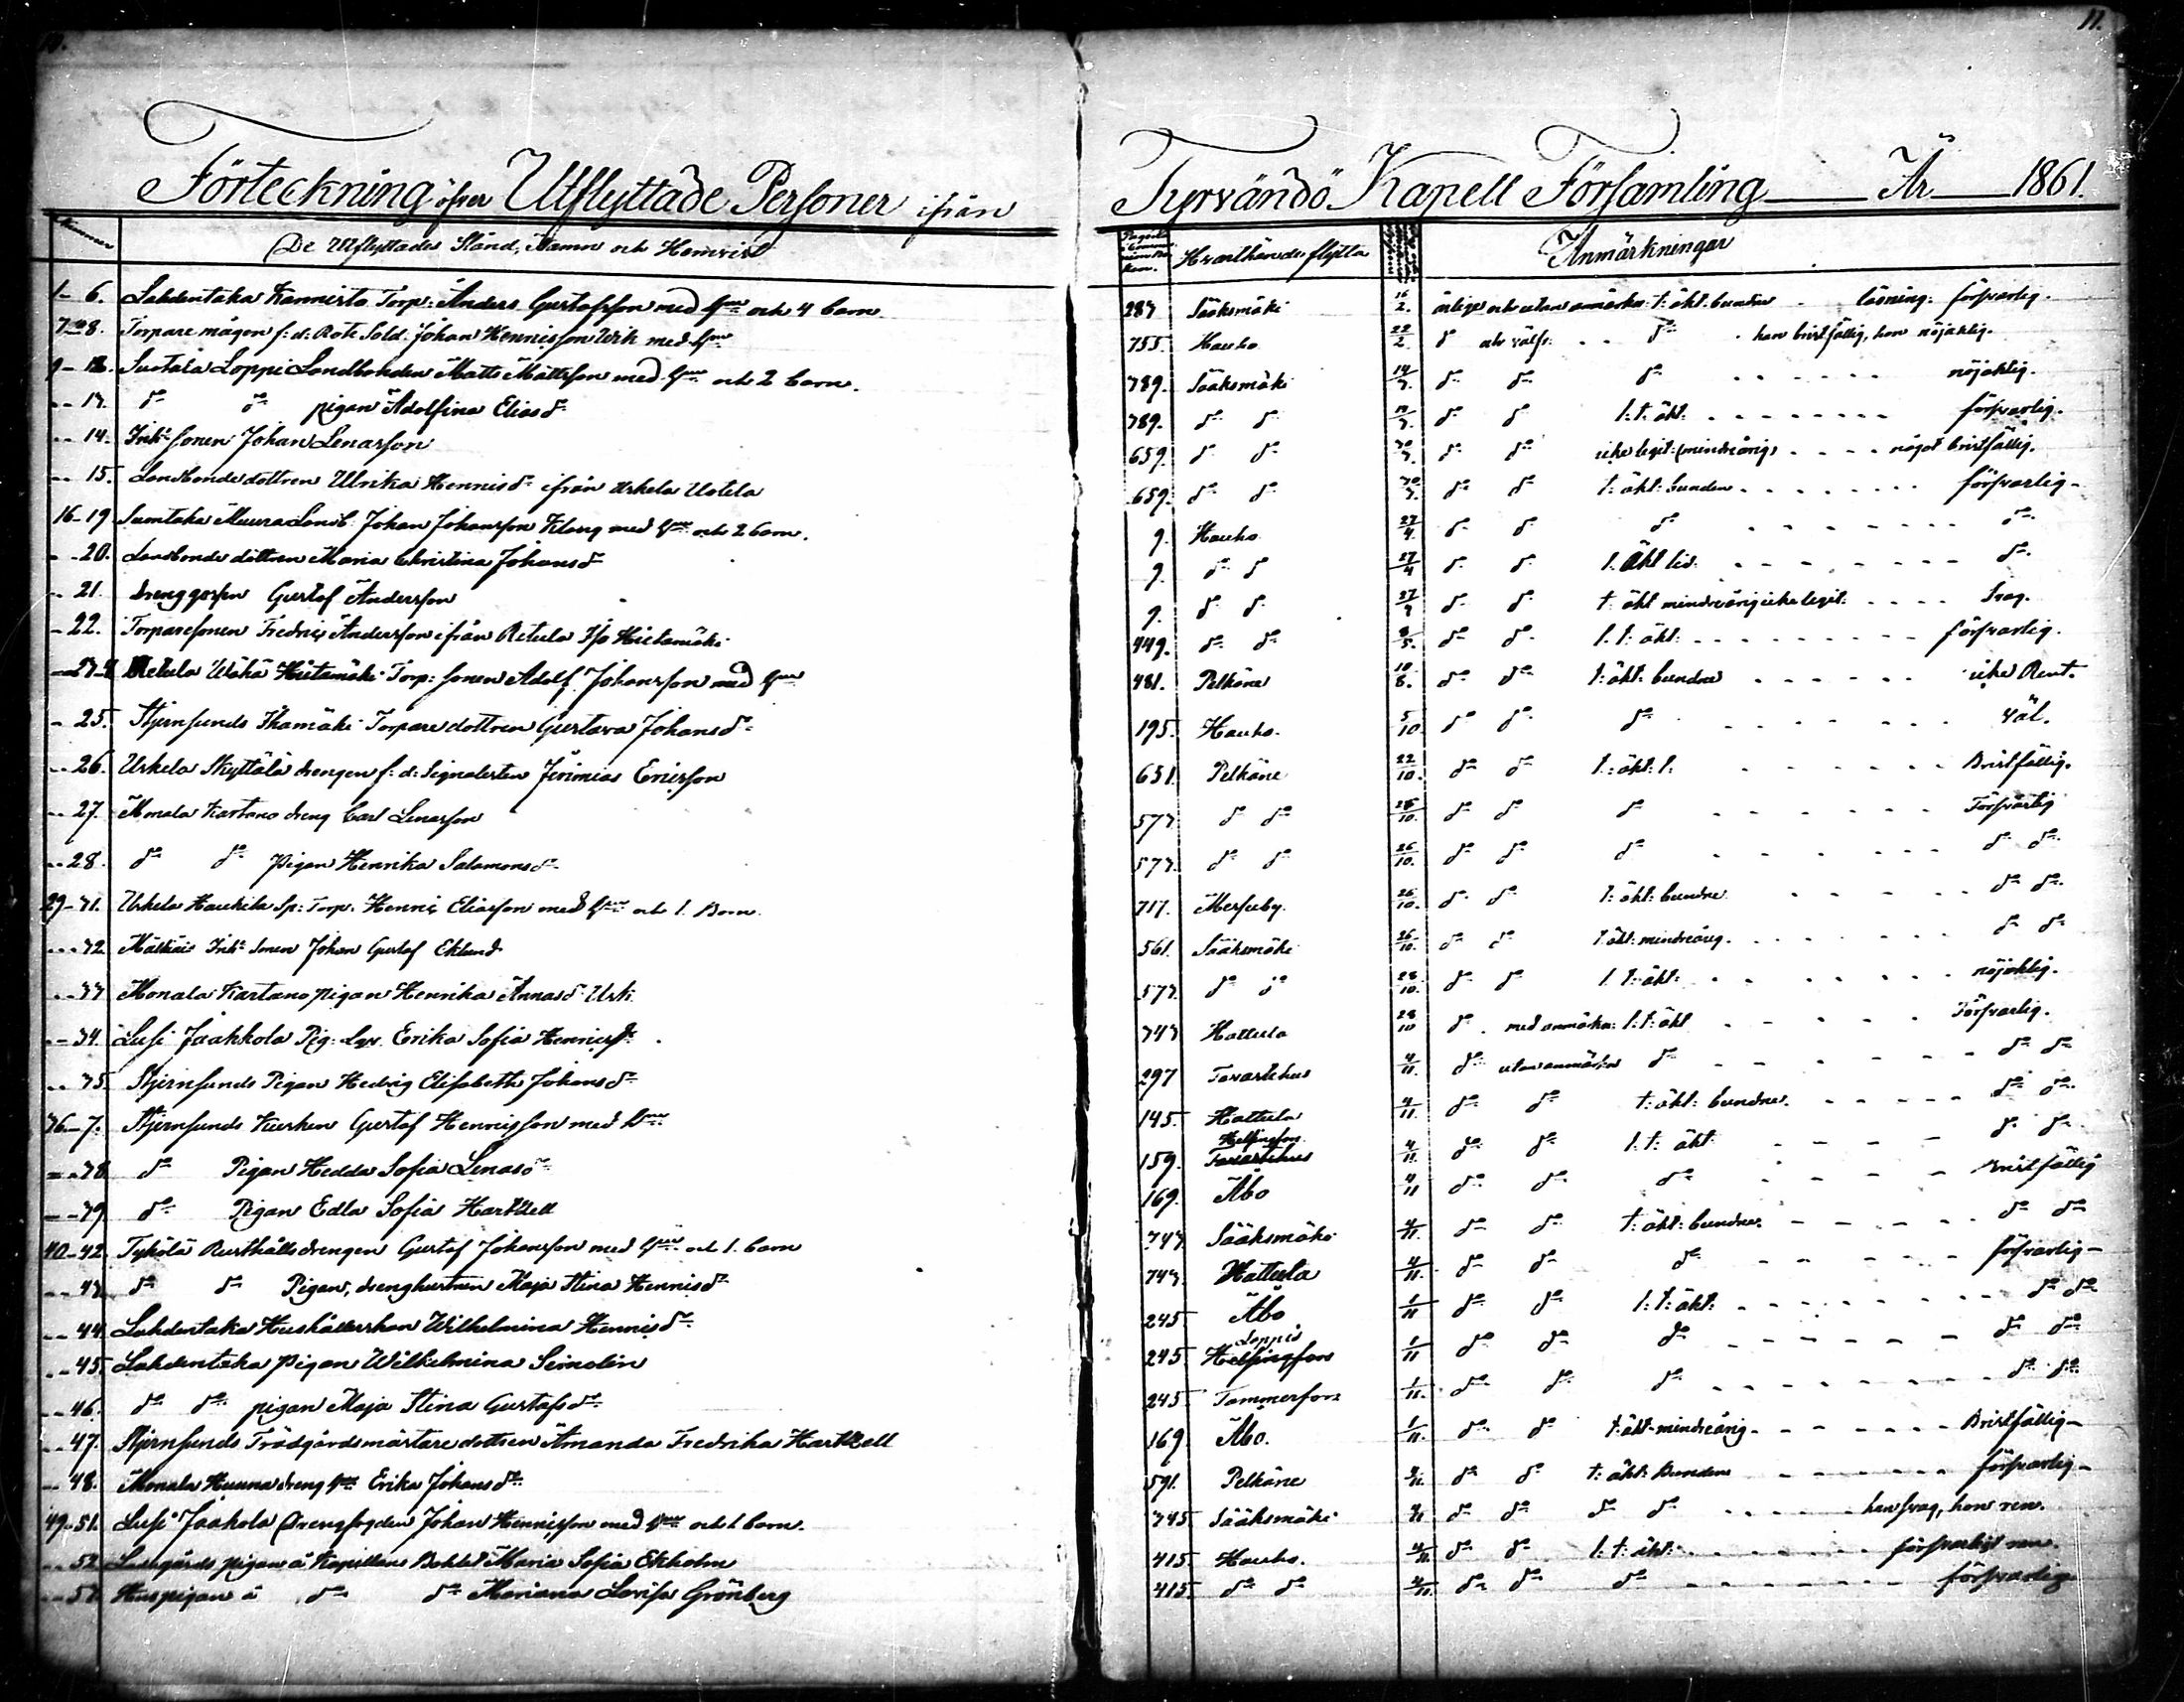 11.
Förteckning öfver Utflyttade Personer ifrån Tyrvändö Kapell Församling År 1861.
De Utflyttades Stånd, Namn och Hemvist Hvarthän de flytta Anmärkningar
1-6. Lahdentaka Kannisto Torp: Anders Gustafsson med hu och 4 barn 287 Sääksmäki 16/2. t: äkt. bunden läsning: försvarlig.
7-8. Torpare mågen f: d: Rote Sold. Johan Henriksson Urk med hu 755. Hauho 22/2. do han bristfällig, hon nöjaktig.
9-12. Suotaka Loppi Landbonden Matts Mattsson med hu och 2 barn. 789. Sääksmäki 14/3. do do do nöjaktig.
13. do do pigan Adolfina Eliasd. 789. do do do do l: t: äkt: försvarlig.
14. Inh: sonen Johan Lenasson 659. do do do do icke legit: (mindreårig) något bristfällig.
15. Landbonde dottren Ulrika Henriksd. ifrån Urkela Uotela 659. do do do do t: äkt: bunden försvarlig
16-19 Suotaka Muura Landb: Johan Johansson Klang med hu och 2 barn. 9. Hauho 27/4. do do do do
20. Landbonde dottren Maria Christina Johansd. 9. do do 27/4 do do l: äkt led. do
21. Drenggossen Gustaf Andersson 9. do do 27/4 do do t: äkt mindreårig icke legit: Svag.
22. Torparesonen Fredric Andersson ifrån Retula Iso Hietamäki 449. do do do do l: t: äkt: försvarlig.
23-4 Retula Wähä Hietamäki Torp: sonen Adolf Johansson med hu 481. Pelkäne 10/8. do do t: äkt: bunden icke Rent.
25. Stjernsunds Ihamäki Torpare dottren Gustava Johansd. 195. Hauho. 5/10 do do do väl.
26. Urkela Skyttälä drengen f: d: Signalisten Jeremias Ericsson 651. Pelkäne 22/10. do do l: äkt: l. Bristfällig.
27. Monala Kartano dreng Carl Lenasson 573. do do 26/10. do do do Försvarlig
28. do do Pigan Henrika Salomonsd. 573. do do 26/10. do do do do do
29-31. Urkela Haukila Sp: Torp: Henric Eliasson med hu och 1. Barn. 717. Messuby. 26/10. do do t: äkt: bunden do do
32 Inh: Sonen Johan Gustaf Eklund 561. Sääksmäki 26/10. do do t: äkt: mindreårig. do do
33 Monala Kartano pigan Henrika Annasd. Urk. 573. do do 28/10. do do l: t: äkt: nöjaktig.
34. Lusi Jaakkola Pig: Erika Sofia Henricsd. 743 Hattula 28/10 do med anmärkn: l: t: äkt Försvarlig.
35. Stjernsunds Pigan Hedvig Elisabeth Johansd. 297 Tavastehus 4/11. do utan anmärkn do do do
36-7. Stjernsunds Kusken Gustaf Henricsson med hu 145. Hattula 4/11. do do t: äkt: bunden. do do
38 do Pigan Hedda Sofia Lenasd. 159. Helsingfors Tavastehus 4/11. do do l: t: äkt do do
39 do Pigan Edla Sofia Harttell 169. Åbo 4/11 do do do bristfällig
40-42. Tykölä Rusthålls drengen Gustaf Johansson med hu och 1. barn 743 Sääksmäki 4/11. do do t: äkt: bunden do do
43 do do Pigan, drenghustrun Maja Stina Henricsd. 743. Hattula 4/11. do do do försvarlig
44 Lahdentaka Hushållerskan Wilhelmina Henricsd. 245. Åbo 1/11 do do l: t: äkt: do do
45. Lahdentaka pigan Wilhelmina Simolin 245. Loppis Helsingfors 1/11 do do do do do
46. do do pigan Maja Stina Gustafsd. 245. Tammerfors 1/11. do do do do do
47. Stjernsunds Trädgårdsmästare dottren Amanda Fredrika Harttell 169 Åbo. 1/11. do do t: äkt mindreårig. Bristfällig
48. Monala Huuna dreng hu Erika Johansd. 591. Pelkäne do do t: äkt: Bunden försvarlig
49-51. Lusi Jaakola Drengfogden Johan Henricsson med hu och 1 barn. 745. Sääksmäki do do do do han svag, hon ren.
52 Ladugårds pigan å Kapellans Bohlet Maria Sofia Ekholm 415. Hauho. 4/11. do do l: t: äkt: försvarligt ren.
53 Huspigan å do do Mariana Lovisa Grönberg 415. do do 4/11. do do do försvarlig